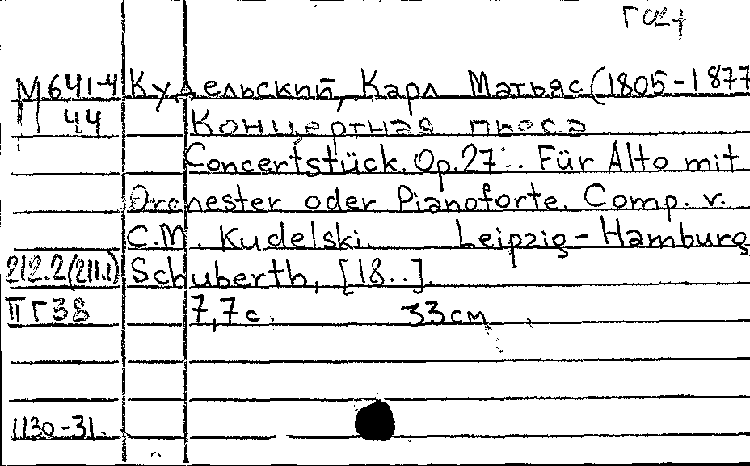 М641-4 Кудельский, Карл Матьяс (1805-1877
44 Концертная пьеса
Concertstück. Op.27.. Für Alto mit
Orchester oder Pianoforte. Comp. v.
C.M. Kudelski. Leipzig-Hamburg
212.2(211.1) Schuberth, [18..].
II Г 38 7,7 с. 33см
1130-31.